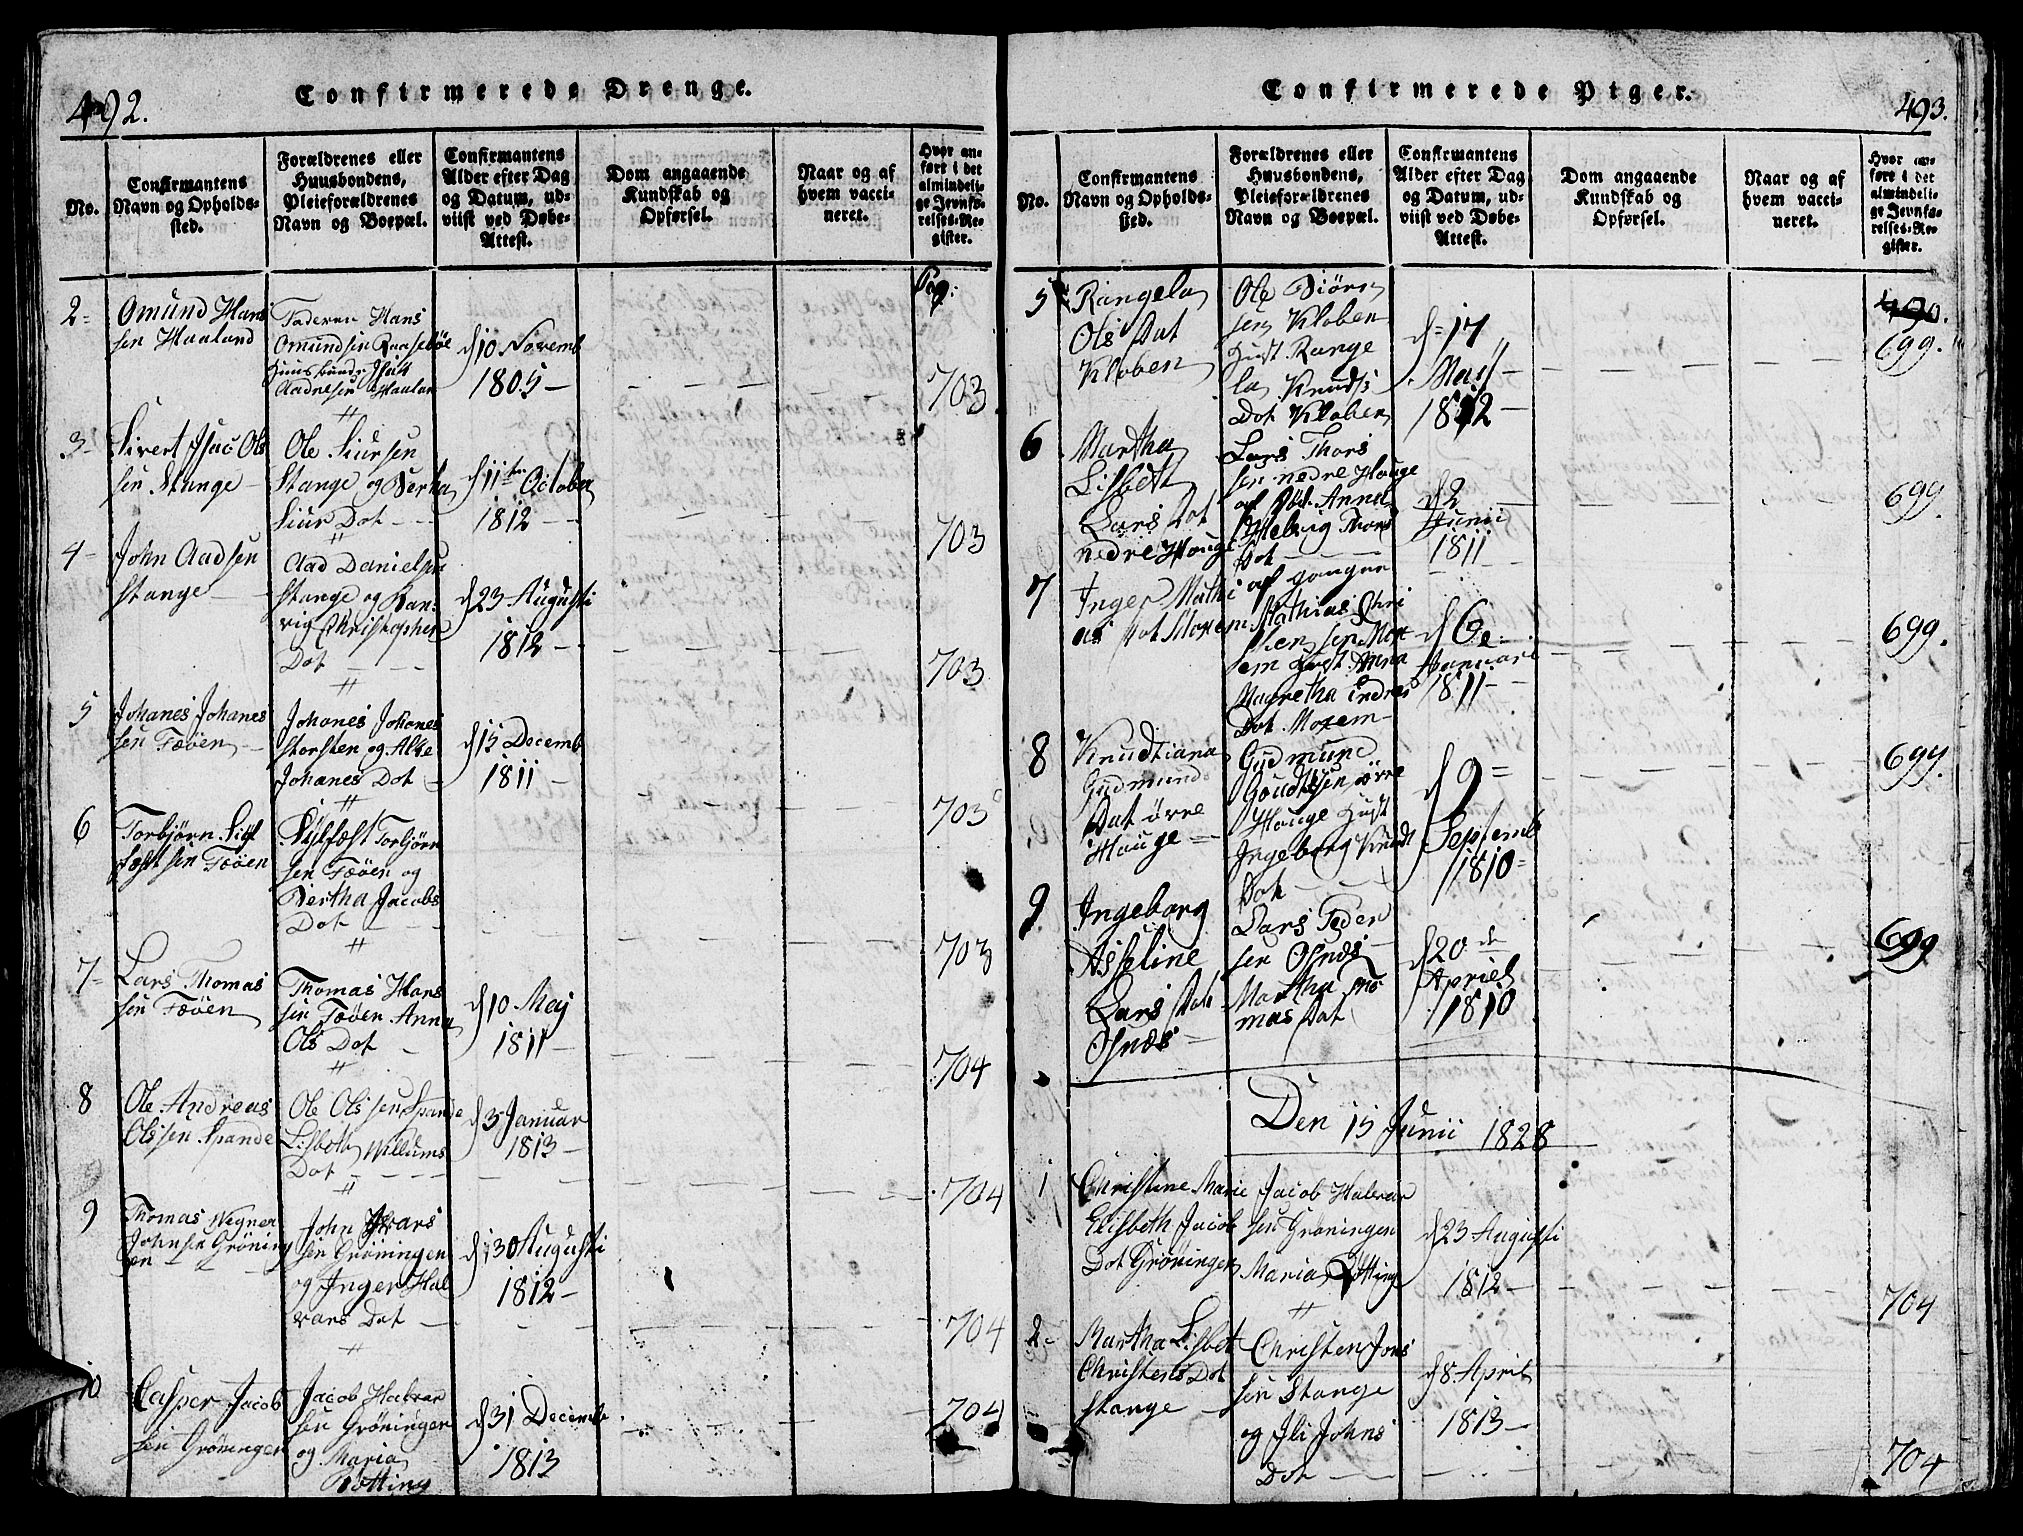 492.
Confirmerede Drenge.
No.
Confirmantens
Navn og Opholds-
sted.
Forældrenes eller
Huusbondens,
Pleieforældrenes
Navn og Boepæl.
Confirmantens
Alder efter Dag
og Datum, ud-
viist ved Døbe-
Attest.
Dom angaaende
Kundskab og
Opførsel.
Naar og af
hvem vacci-
neret.
Hvor an-
ført i det
almindeli-
ge Jevnfø-
relses-Re-
gister.
Pag:
2 Omund Hans
sen Haaland
Faderen Hans
Omundsen
Huusbunde Isak
Aadnesen Haaland
d 10 Novemb
1805
703
3 Sivert Isac Ols
sen Stange
Ole Siursen
Stange og Berta
Siur Dot
d 11te October
1812
703
4 John Aadsen
Stange
Aad Danielsen
Stange og Ran-
vig Christopher
Dot
d 23 Augusti
1812
703
5 Johanes Johanes
sen Fæøen
Johanes Johanes
Torsten og Alke
Johanes Dot
d 15 Decemb
1811
703
6 Torbjørn Sylf
fæst sen Fæøen
Sylfæst Torbjørn
sen Fæøen og
Bertha Jacobs
Dot
703
7 Lars Thomas
sen Fæøen
Thomas Hans
sen Fæøen Anna
Ols Dot
d 10 Maj
1811
704
8 Ole Andreas
Olssen Spande
Ole Olssen Spande
Lisbeth Willums
Dot
d 3 Januar
1813
704
9 Thomas Wegner
Johnsen Grøning
en
John Ivars
sen Grøningen
og Inger Hal
vars Dot
d 30 Augusti
1812
704
10 Casper Jacob
sen Grøningen
Jacob Halvar
sen Grøningen
og Maria
Røtting
d 31 Decemb
1813
704
Confirmerede Piger.
493.
No.
Confirmantens
Navn og Opholds-
sted.
Forældrenes eller
Huusbondens,
Pleieforældrenes
Navn og Boepæl.
Confirmantens
Alder efter Dag
og Datum, ud-
viist ved Døbe-
Attest.
Dom angaaende
Kundskab og
Opførsel.
Naar og af
hvem vacci-
neret.
Hvor an-
ført i det
almindeli-
ge Jevnfø-
relses-Re-
gister.
5 Rangela
Ols Dat
Kloben
Ole Biørn
sen Kloben
Hust Range
la Knuds
Dot Kloben
d 17
Maii
1812
490.
699.
6 Martha
Lisbeth
Lars Dot
nedre Houge
Lars Thors
sen nedre Houge
af Død. Anna
Helvig Thors
Dot
d 2
Junii
1811
699.
7 Inger Mathi
as Dot Moxem
Mathias Chri
stensen Mox
em Hust Anna
Magretha Endres
Dot Moxem
d 6
Januari
1811
699.
8 Knudtiana
Gudmund
Dat øvre
Houge
Gudmund
Goudtsen øvre
Houge Hust
Ingeborg Knudt
Dot
d 9
Septemb
1810
699.
9 Ingeborg
Asseline
Lars Dot
Osnæs
Lars Peder
sen Osnæs
Martha To
mas Dat
d 20 de
Apriel
1810
699
Den 15 Junii 1828
1 Christine Marie
Elisbeth Jacob
Dot Grøningen
Jacob Halvar
sen Grøningen
Maria Røtting
d 23 Augusti
1812
704
2 Martha Lisbet
Christens Dot
Stange
Christen Jons
sen Stange
og Ili Johns
Dot
d 8 April
1813
704